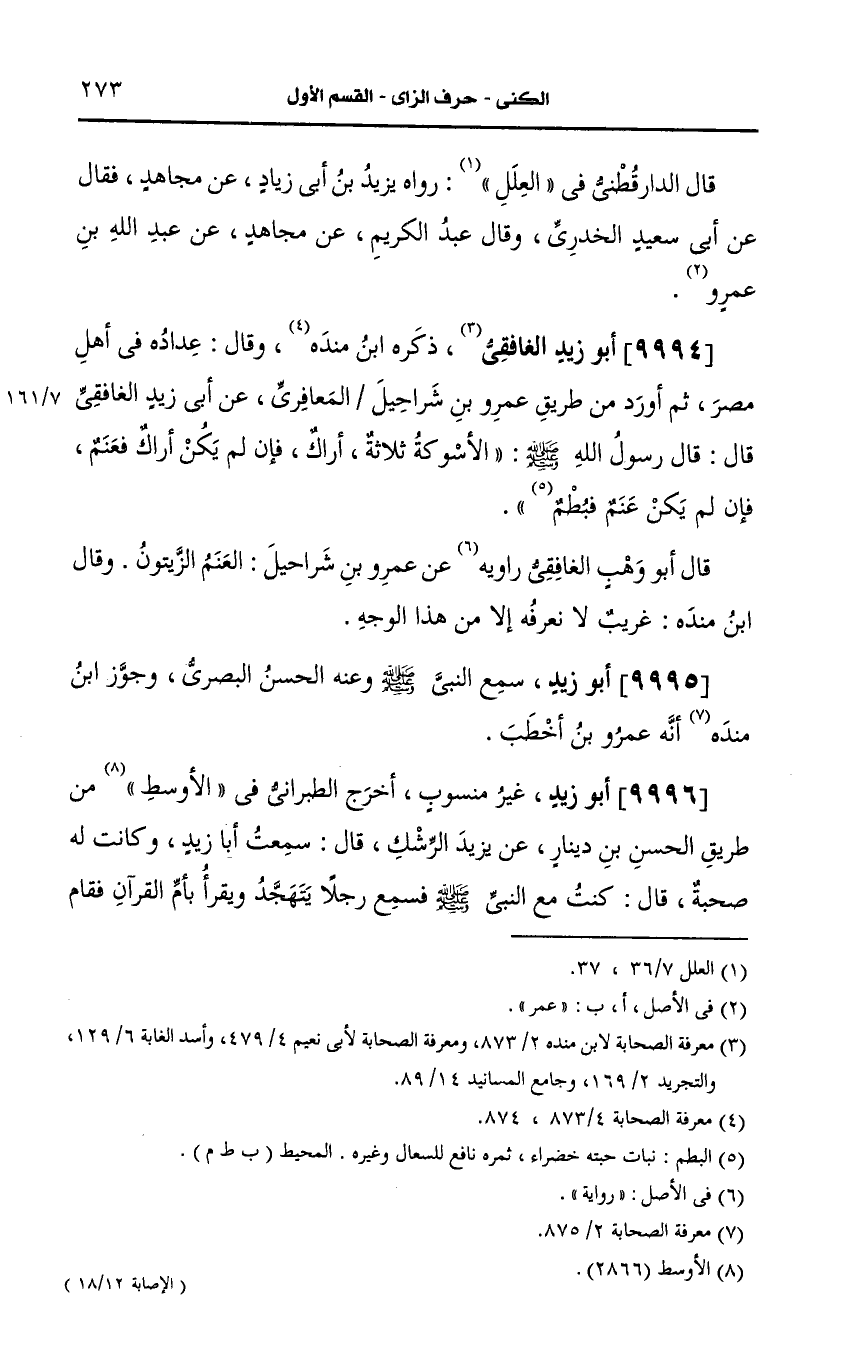 ٢٧٣ الكنى - حرف الزاى - القسم الأول
قال الدارقُطْنىُّ فى « العِلَلِ »(١) : رواه يزيدُ بنُ أبى زيادٍ ، عن مجاهدٍ ، فقال
عن أبى سعيدٍ الخدرىِّ ، وقال عبدُ الكريمِ ، عن مجاهدٍ ، عن عبدِ اللهِ بنِ
عمرٍو(٢) .
[٩٩٩٤] أبو زيدٍ الغافقىُّ(٣) ، ذكَره ابنُ مندَه(٤) ، وقال : عِدادُه فى أهلِ
مصرَ ، ثم أورَد من طريقِ عمرِو بنِ شَراحِيلَ / المَعافِرىِّ ، عن أبى زيدٍ الغافقىِّ ١٦١/٧
قال : قال رسولُ اللهِ ﷺ : « الأسْوكةُ ثلاثةٌ ، أراكٌ ، فإن لم يَكُنْ أراكٌ فعَنَمٌ ،
فإن لم يَكنْ عَنَمٌ فبُطْمٌ(٥) » .
قال أبو وَهْبٍ الغافِقِىُّ راويه(٦) عن عمرِو بنِ شَراحيلَ : العَنَمُ الزَّيتونُ . وقال
ابنُ مندَه : غريبٌ لا نعرفُه إلا من هذا الوجهِ .
[٩٩٩٥] أبو زيدٍ ، سمِع النبىَّ ﷺ وعنه الحسنُ البصرىُّ ، وجوَّز ابنُ
مندَه(٧) أنَّه عمرُو بنُ أخْطَبَ .
[٩٩٩٦] أبو زيدٍ ، غيرُ منسوبٍ ، أخرَج الطبرانىُّ فى « الأوسطِ »(٨) من
طريقِ الحسنِ بنِ دينارٍ ، عن يزيدَ الرِّشْكِ ، قال : سمِعتُ أبا زيدٍ ، وكانت له
صحبةٌ ، قال : كنتُ مع النبىِّ ﷺ فسمِع رجلًا يَتَهَجَّدُ ويقرأُ بأمِّ القرآنِ فقام
(١) العلل ٣٦/٧ ، ٣٧.
(٢) فى الأصل ، أ ، ب : « عمر » .
(٣) معرفة الصحابة لابن منده ٢/ ٨٧٣، ومعرفة الصحابة لأبى نعيم ٤/ ٤٧٩، وأسد الغابة ٦/ ١٢٩،
والتجريد ٢/ ١٦٩، وجامع المسانيد ١٤/ ٨٩.
(٤) معرفة الصحابة ٨٧٣/٤ ، ٨٧٤.
(٥) البطم : نبات حبته خضراء ، ثمره نافع للسعال وغيره . المحيط ( ب ط م ) .
(٦) فى الأصل : « رواية » .
(٧) معرفة الصحابة ٢/ ٨٧٥.
(٨) الأوسط (٢٨٦٦) .
( الإصابة ١٨/١٢ )